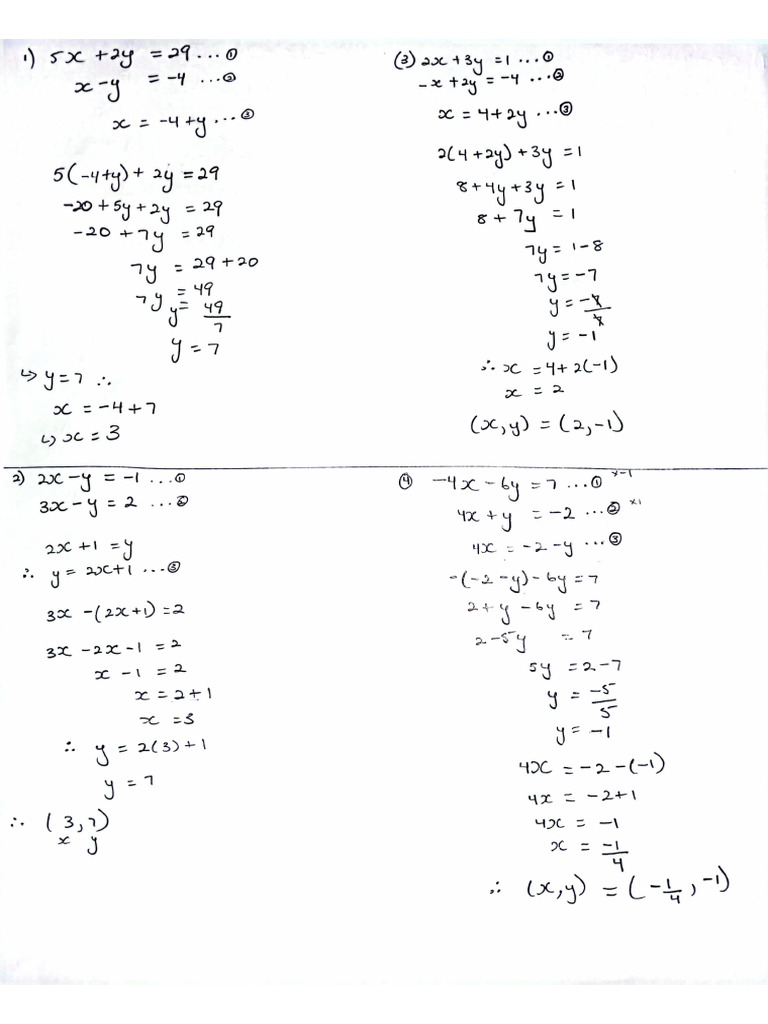 1) 5x + 2y = 29 ... ①
x - y = -4 ... ②
x = -4 + y ... ③
5(-4+y) + 2y = 29
-20 + 5y + 2y = 29
-20 + 7y = 29
7y = 29 + 20
7y = 49
y = 49/7
y = 7
↳ y = 7 ∴
x = -4 + 7
↳ x = 3
2) 2x - y = -1 ... ①
3x - y = 2 ... ②
2x + 1 = y
∴ y = 2x + 1 ... ③
3x - (2x + 1) = 2
3x - 2x - 1 = 2
x - 1 = 2
x = 2 + 1
x = 3
∴ y = 2(3) + 1
y = 7
∴ (3, 7)
x y
(3) 2x + 3y = 1 ... ①
-x + 2y = -4 ... ②
x = 4 + 2y ... ③
2(4 + 2y) + 3y = 1
8 + 4y + 3y = 1
8 + 7y = 1
7y = 1 - 8
7y = -7
y = -7/7
y = -1
∴ x = 4 + 2(-1)
x = 2
(x, y) = (2, -1)
④ -4x - 6y = 7 ... ① x-1
4x + y = -2 ... ② x1
4x = -2 - y ... ③
-(-2 - y) - 6y = 7
2 + y - 6y = 7
2 - 5y = 7
5y = 2 - 7
y = -5/5
y = -1
4x = -2 - (-1)
4x = -2 + 1
4x = -1
x = -1/4
∴ (x, y) = (-1/4, -1)